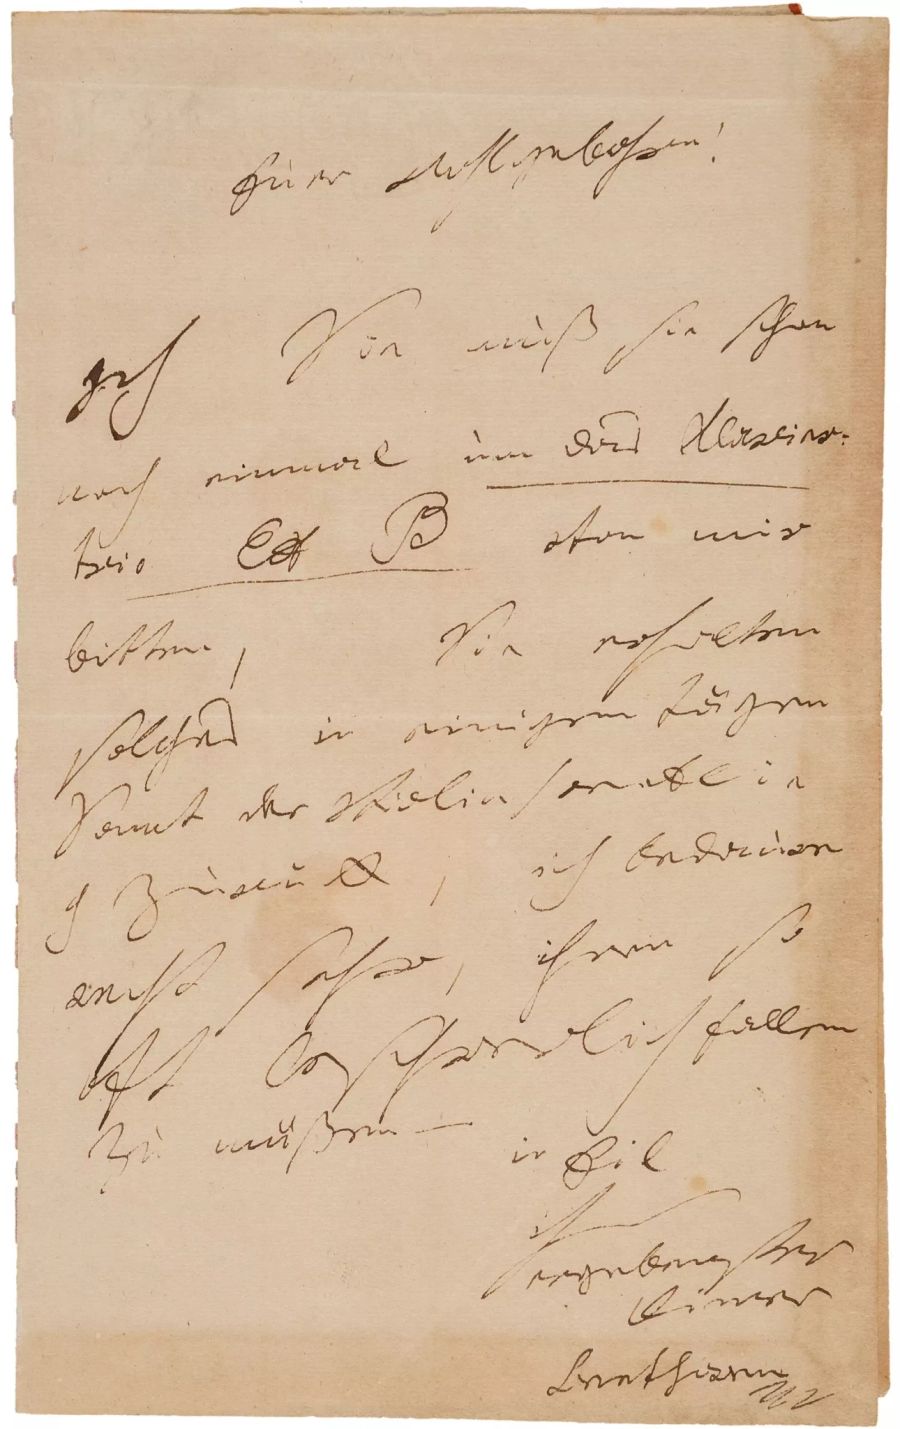 Euer Wohlgebohren!
Ich muß sie schon
noch einmal um das Klavier-
trio in B von mir
bitten, Sie erhalten
solches in einigen Tägen
samt der Violin sonate in
g zurück, ich bedaure
recht sehr, ihnen so
oft Beschwerlich fallen
zu müßen — in Eil
ihr
ergebenster
Diener
Beethowen